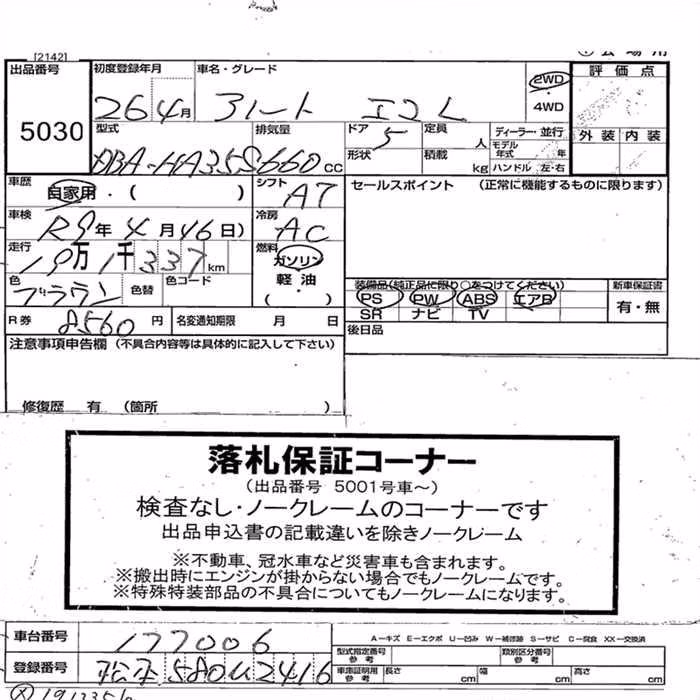 [2142]
出品番号 5030
初度登録年月 26 4月
車名・グレード アルト エコL
2WD・4WD
評価点
外装 内装
型式 DBA-HA35S
排気量 660cc
ドア 5
定員 人
ディーラー 並行
モデル年式 年
形状
積載 kg
ハンドル 左・右
車歴 自家用・( )
シフト AT
セールスポイント (正常に機能するものに限ります)
車検 R9年 4月 16日)
冷房 AC
走行 19万 1千 337km
燃料 ガソリン 軽油 ( )
色 ブラウン
色替
色コード
装備品(純正品に限り○をつけてください)
新車保証書
PS PW ABS エアB
SR ナビ TV
有・無
R券 8560円
名変通知期限 月 日
後日品
注意事項申告欄 (不具合内容等は具体的に記入して下さい)
修復歴 有 (箇所 )
落札保証コーナー
(出品番号 5001号車〜)
検査なし・ノークレームのコーナーです
出品申込書の記載違いを除きノークレーム
※不動車、冠水車など災害車も含まれます。
※搬出時にエンジンが掛からない場合でもノークレームです。
※特殊特装部品の不具合についてもノークレームになります。
A−キズ E−エクボ U−凹み W−補修跡 S−サビ C−腐食 XX−交換済
車台番号 177006
型式指定番号 参考
類別区分番号 参考
登録番号 松本580 2416
車庫証明用 参考 長さ cm 幅 cm 高さ cm